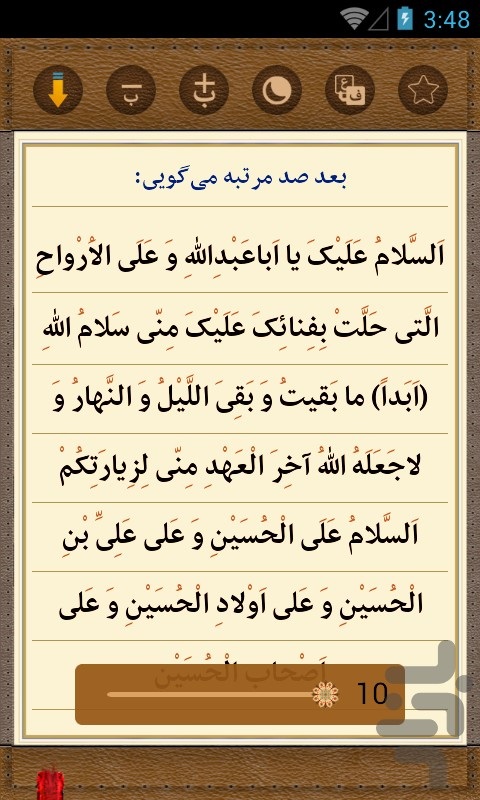 3:48
بعد صد مرتبه می‌گویی:
اَلسَّلامُ عَلَیْکَ یا اَباعَبْدِاللهِ وَ عَلَی الاَرْواحِ
الَّتی حَلَّتْ بِفِنائِکَ عَلَیْکَ مِنّی سَلامُ اللهِ
(اَبَداً) ما بَقیتُ وَ بَقِیَ اللَّیْلُ وَ النَّهارُ وَ
لاجَعَلَهُ اللهُ آخِرَ الْعَهْدِ مِنّی لِزِیارَتِکُمْ
اَلسَّلامُ عَلَی الْحُسَیْنِ وَ عَلی عَلِیِّ بْنِ
الْحُسَیْنِ وَ عَلی اَوْلادِ الْحُسَیْنِ وَ عَلی
اَصْحابِ الْحُسَیْنِ
10
بازار